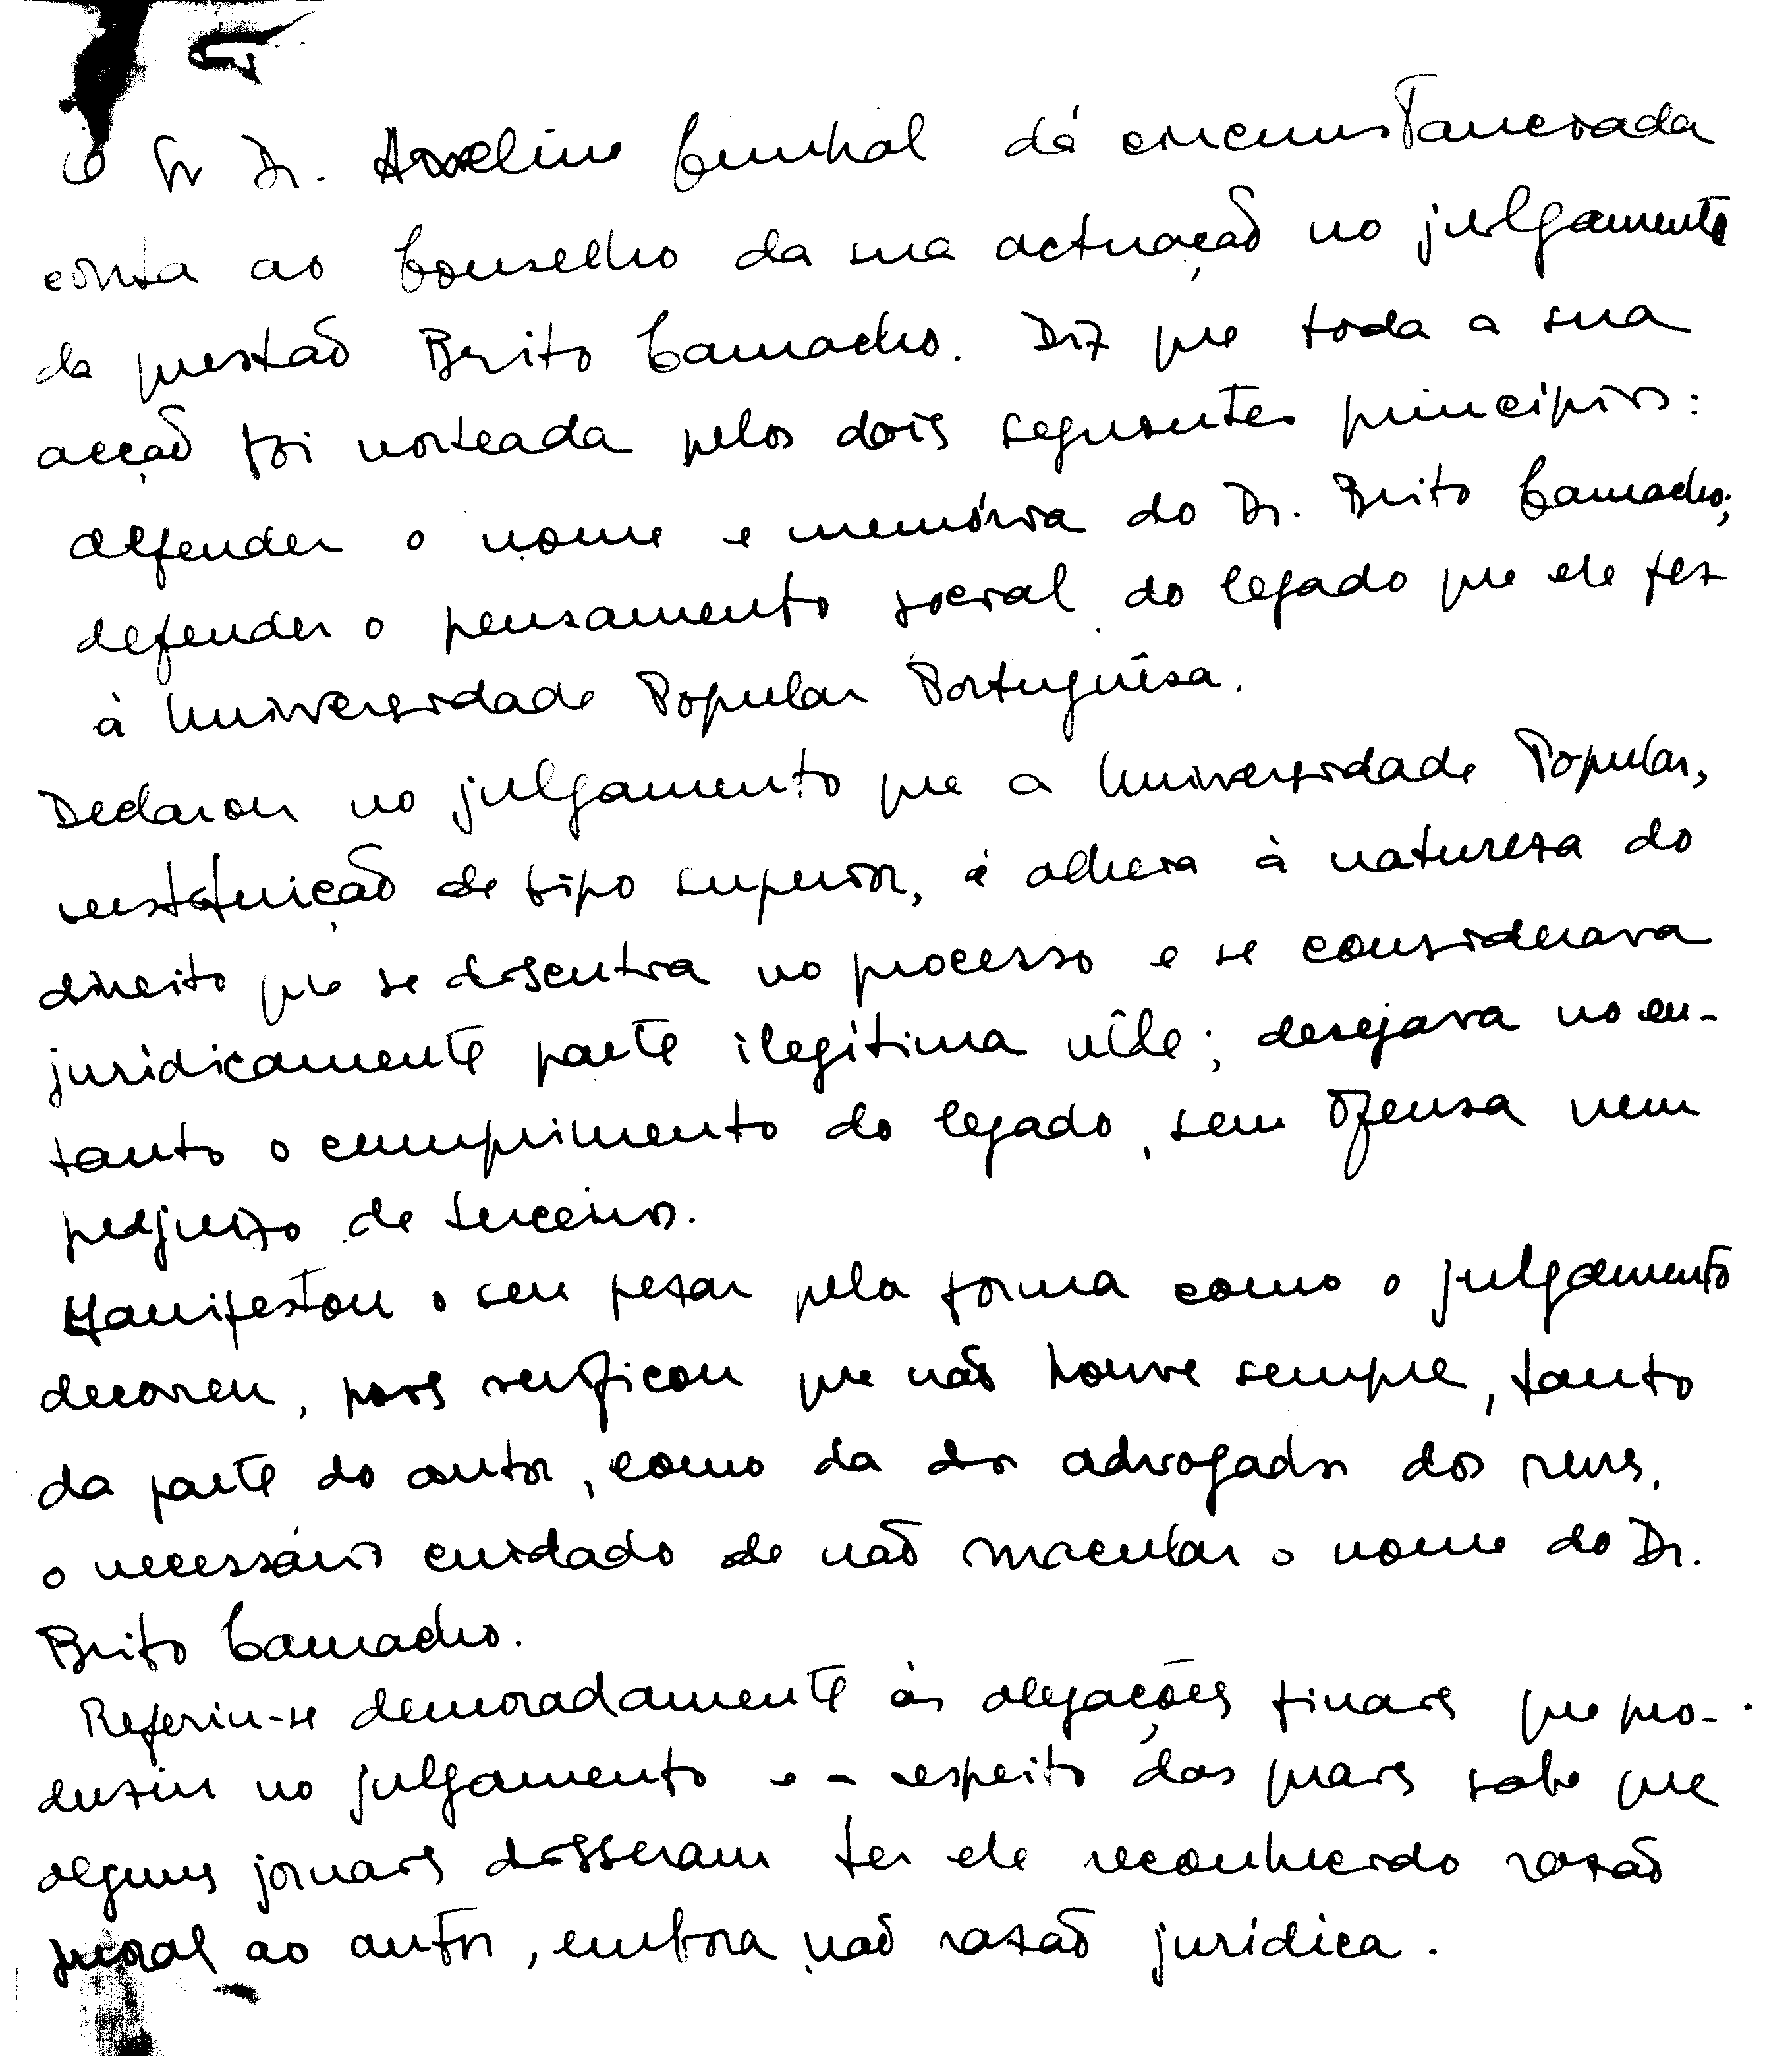 O Sr Dr. Avelino Cunhal dá circunstanciada
conta ao Conselho da sua actuação no julgamento
da questão Brito Camacho. Diz que toda a sua
acção foi norteada pelos dois seguintes princípios:
defender o nome e memória do Dr. Brito Camacho;
defender o pensamento social do legado que ele fez
à Universidade Popular Portuguêsa.
Declarou no julgamento que a Universidade Popular,
instituição de tipo superior, é alheia à natureza do
direito que se discutia no processo e se considerava
juridicamente parte ilegítima nêle; desejava no en-
tanto o cumprimento do legado, sem ofensa nem
prejuizo de terceiros.
Manifestou o seu pezar pela forma como o julgamento
decorreu, pois verificou que não houve sempre, tanto
da parte do autor, como da dos advogados dos reus,
o necessário cuidado de não macular o nome do Dr.
Brito Camacho.
Referiu-se demoradamente às alegações finais que pro-
duziu no julgamento e a respeito das quais sabe que
alguns jornais disseram ter ele reconhecido razão
moral ao autor, embora não razão jurídica.